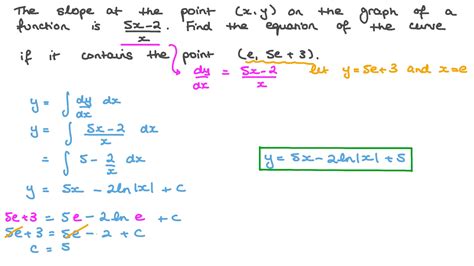 The slope at the point (x,y) on the graph of a
function is 5x-2/x. Find the equation of the curve
if it contains the point (e, 5e+3).
dy/dx = 5x-2/x
let y=5e+3 and x=e
y = ∫ dy/dx dx
y = ∫ 5x-2/x dx
= ∫ 5 - 2/x dx
y = 5x - 2ln|x| + c
y = 5x - 2ln|x| + 5
5e+3 = 5e - 2ln e + c
5e+3 = 5e - 2 + c
c = 5